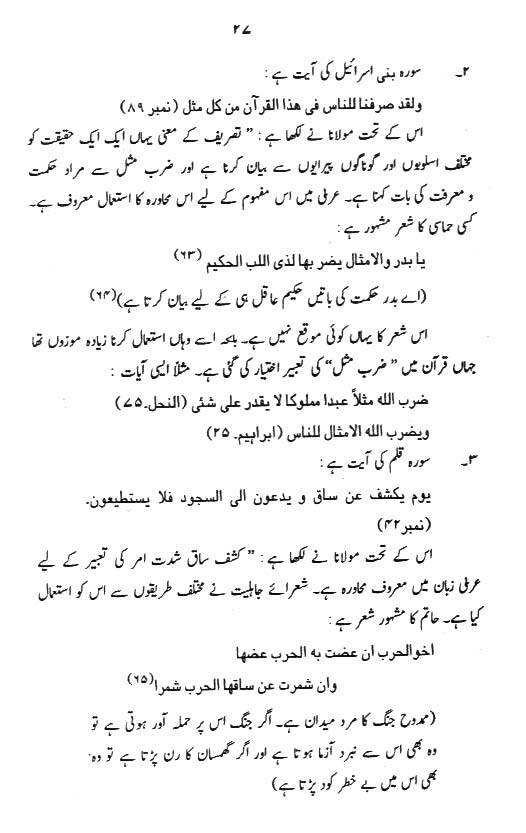 ۲۷
۲۔ سورہ بنی اسرائیل کی آیت ہے :
ولقد صرفنا للناس فی هذا القرآن من کل مثل (نمبر ۸۹)
اس کے تحت مولانا نے لکھا ہے : ” تصریف کے معنی یہاں ایک ایک حقیقت کو
مختلف اسلوبوں اور گوناگوں پیرایوں سے بیان کرنا ہے اور ضرب مثل سے مراد حکمت
و معرفت کی بات کہنا ہے۔ عربی میں اس مفہوم کے لیے اس محاورہ کا استعمال معروف ہے۔
کسی حماسی کا شعر مشہور ہے :
یا بدر والامثال یضر بها لذی اللب الحکیم (۶۳)
(اے بدر حکمت کی باتیں حکیم عاقل ہی کے لیے بیان کرتا ہے) (۶۴)
اس شعر کا یہاں کوئی موقع نہیں ہے۔ بلکہ اسے وہاں استعمال کرنا زیادہ موزوں تھا
جہاں قرآن میں ” ضرب مثل“ کی تعبیر اختیار کی گئی ہے۔ مثلاً ایسی آیات :
ضرب الله مثلاً عبدا مملوکا لا یقدر علی شئی (النحل۔۷۵)
ویضرب الله الامثال للناس (ابراہیم۔ ۲۵)
۳۔ سورہ قلم کی آیت ہے :
یوم یکشف عن ساق و یدعون الی السجود فلا یستطیعون۔
(نمبر ۴۲)
اس کے تحت مولانا نے لکھا ہے : ” کشف ساق شدت امر کی تعبیر کے لیے
عربی زبان میں معروف محاورہ ہے۔ شعرائے جاہلیت نے مختلف طریقوں سے اس کو استعمال
کیا ہے۔ حاتم کا مشہور شعر ہے :
اخوالحرب ان عضت به الحرب عضها
وان شمرت عن ساقها الحرب شمرا (۶۵)
(ممدوح جنگ کا مرد میدان ہے۔ اگر جنگ اس پر حملہ آور ہوتی ہے تو
وہ بھی اس سے نبرد آزما ہوتا ہے اور اگر گھمسان کا رن پڑتا ہے تو وہ
بھی اس میں بے خطر کود پڑتا ہے)